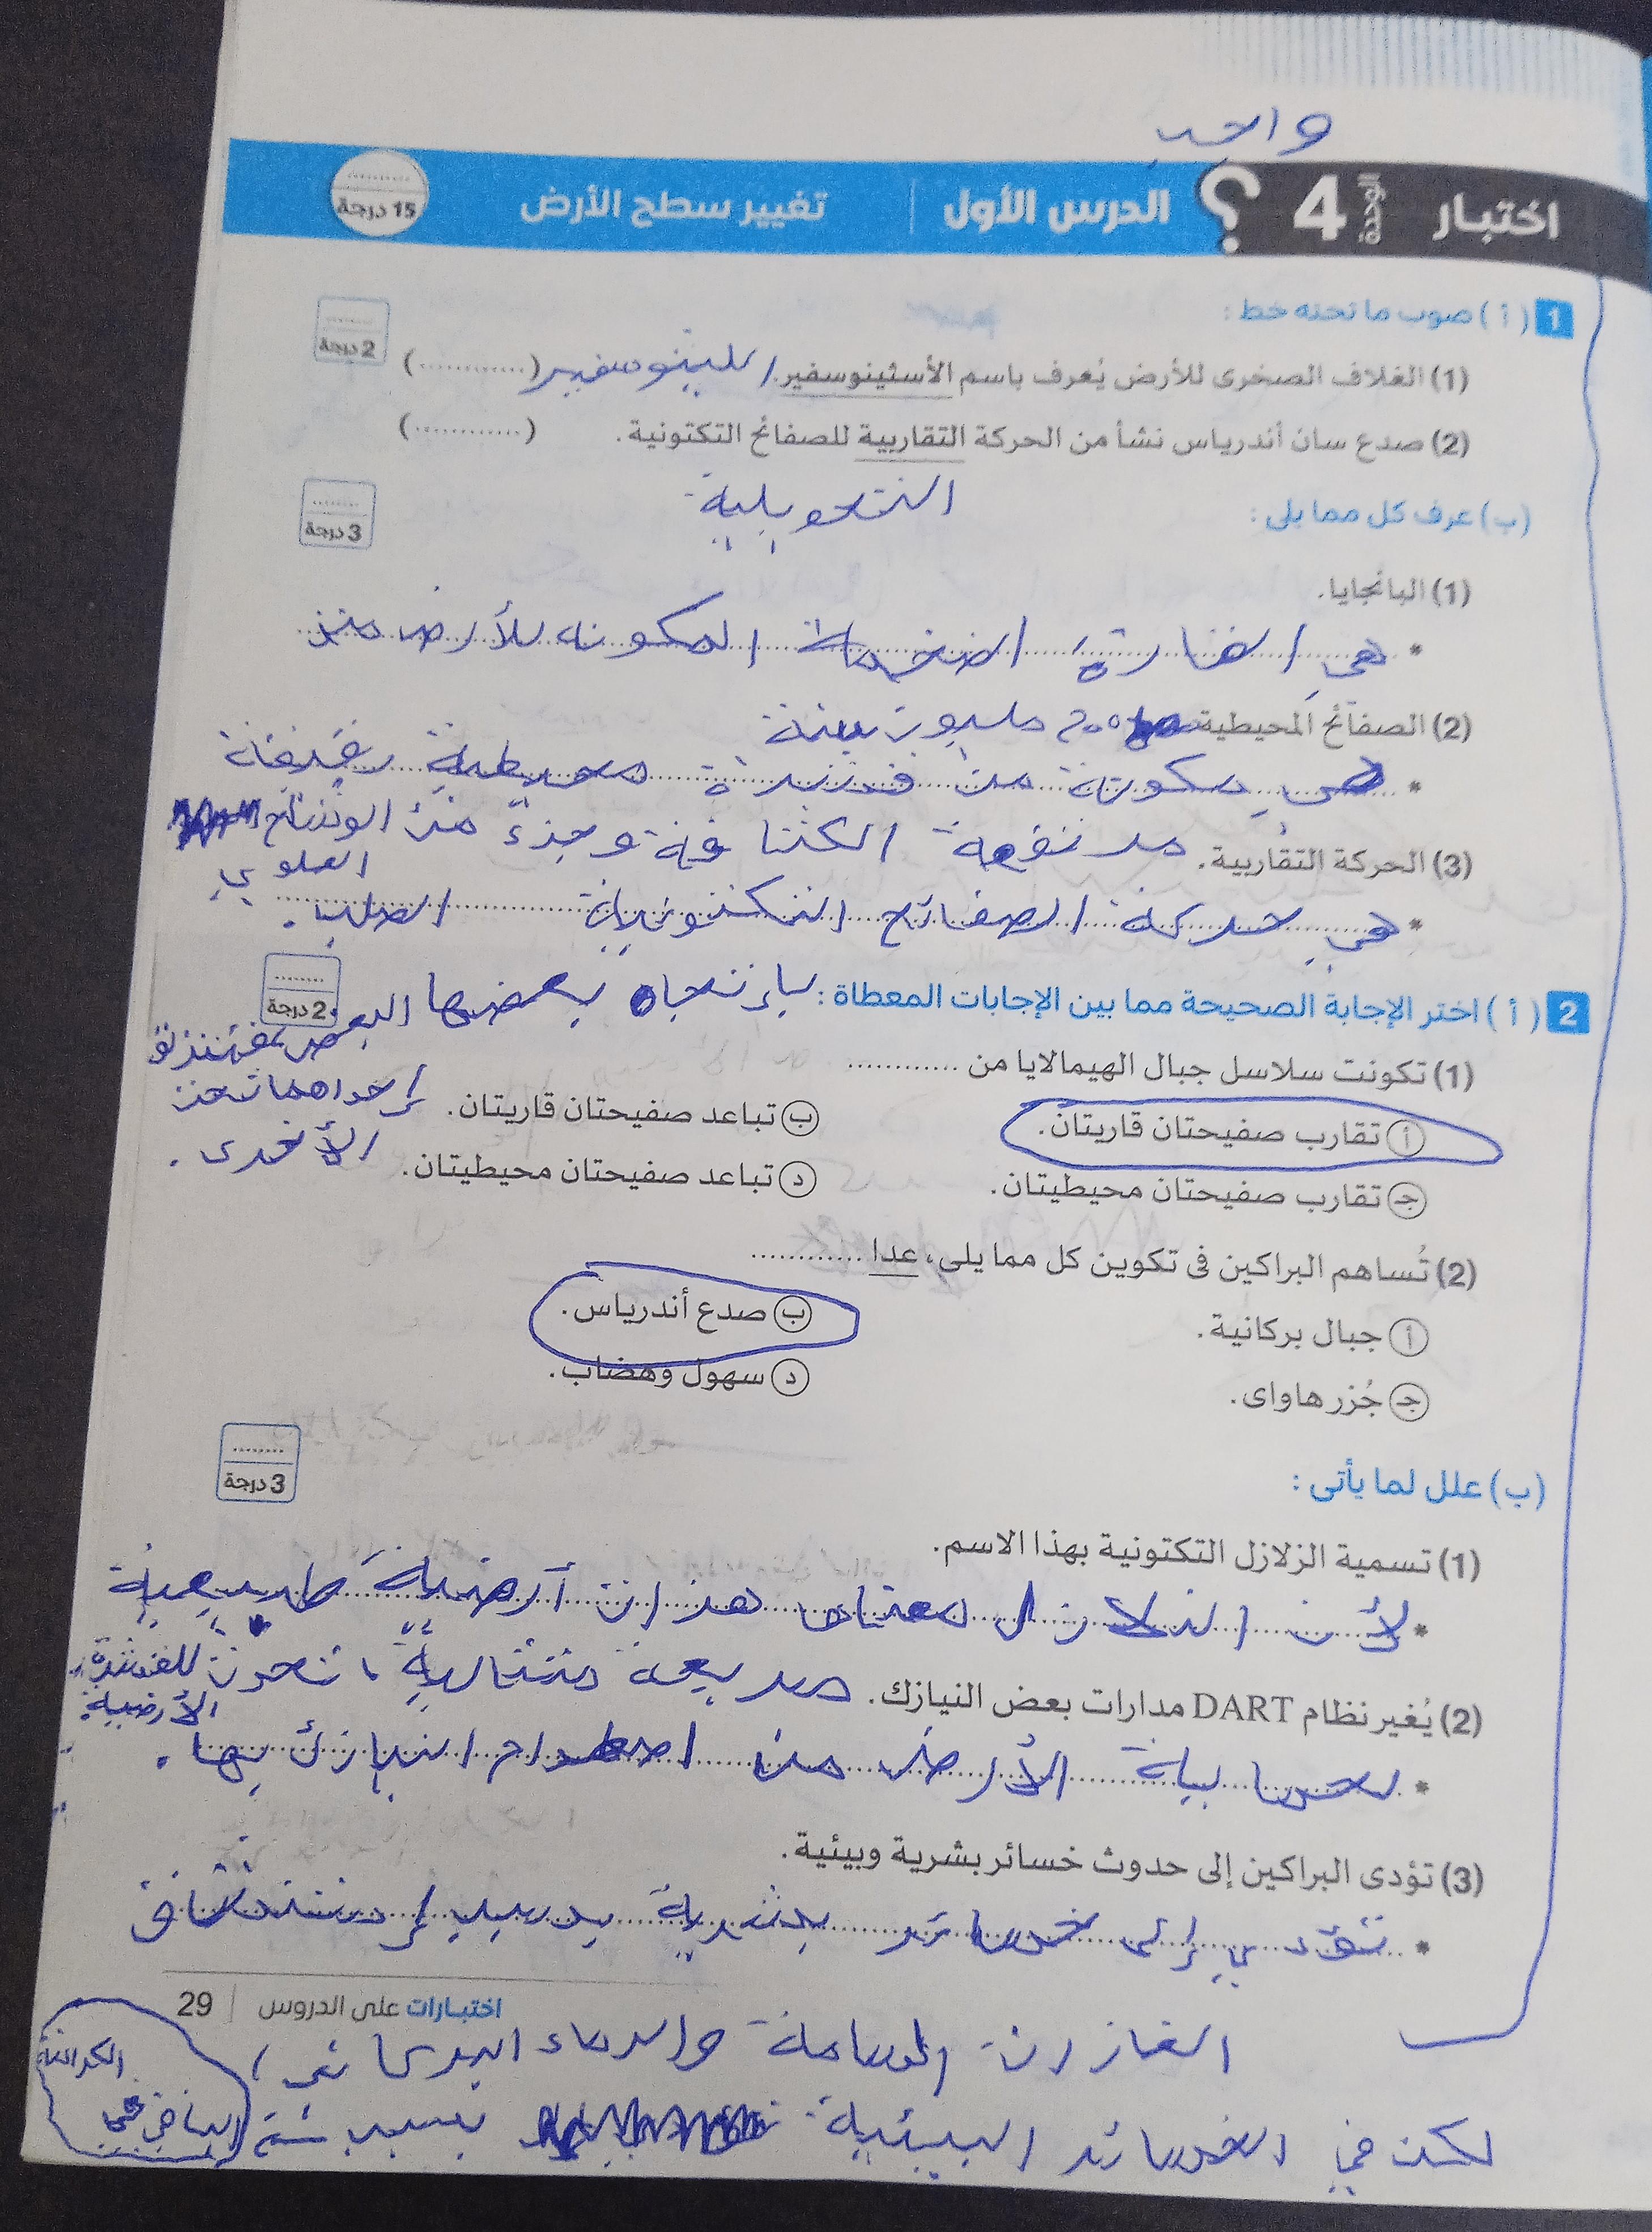 واجب
اختبار الوحدة 4 ? الدرس الأول | تغيير سطح الأرض 15 درجة
1 (أ) صوب ما تحته خط : 2 درجة
(1) الغلاف الصخرى للأرض يُعرف باسم الأسثينوسفير. (............) الليثوسفير
(2) صدع سان أندرياس نشأ من الحركة التقاربية للصفائح التكتونية. (............)
التحويلية
(ب) عرف كل مما يلى : 3 درجة
(1) البانجايا.
* هي القارة الضخمة المكونه للأرض منذ
(2) الصفائح المحيطية. 200 مليون سنة
* هي مكونة من قشرة محيطية رقيقة
مرتفعة الكثافة وجزء من الوشاح
(3) الحركة التقاربية.
العلوي
* هي حركة الصفائح التكتونية الصلب.
2 (أ) اختر الإجابة الصحيحة مما بين الإجابات المعطاة : 2 درجة
بإتجاه بعضها البعض، فتنزلق
إحداهما تحت
الأخرى.
(1) تكونت سلاسل جبال الهيمالايا من ............
أ تقارب صفيحتان قاريتان. ب تباعد صفيحتان قاريتان.
جـ تقارب صفيحتان محيطيتان. د تباعد صفيحتان محيطيتان.
(2) تُساهم البراكين فى تكوين كل مما يلى، عدا ............
أ جبال بركانية. ب صدع أندرياس.
جـ جُزر هاواى. د سهول وهضاب.
(ب) علل لما يأتى : 3 درجة
(1) تسمية الزلازل التكتونية بهذا الاسم.
* لأن الزلازل معناه هزات أرضية طبيعية
سريعة متتالية، تحدث للقشرة
الأرضية
(2) يُغير نظام DART مدارات بعض النيازك.
* لحماية الأرض من اصطدام النيازك بها.
(3) تؤدى البراكين إلى حدوث خسائر بشرية وبيئية.
* تؤدي إلى خسائر بشرية بسبب إستنشاق
اختبارات على الدروس | 29
الغازات السامة والرماد البركاني،
لكن في الخسائر البيئية بسبب
الباقي في
الكراسة